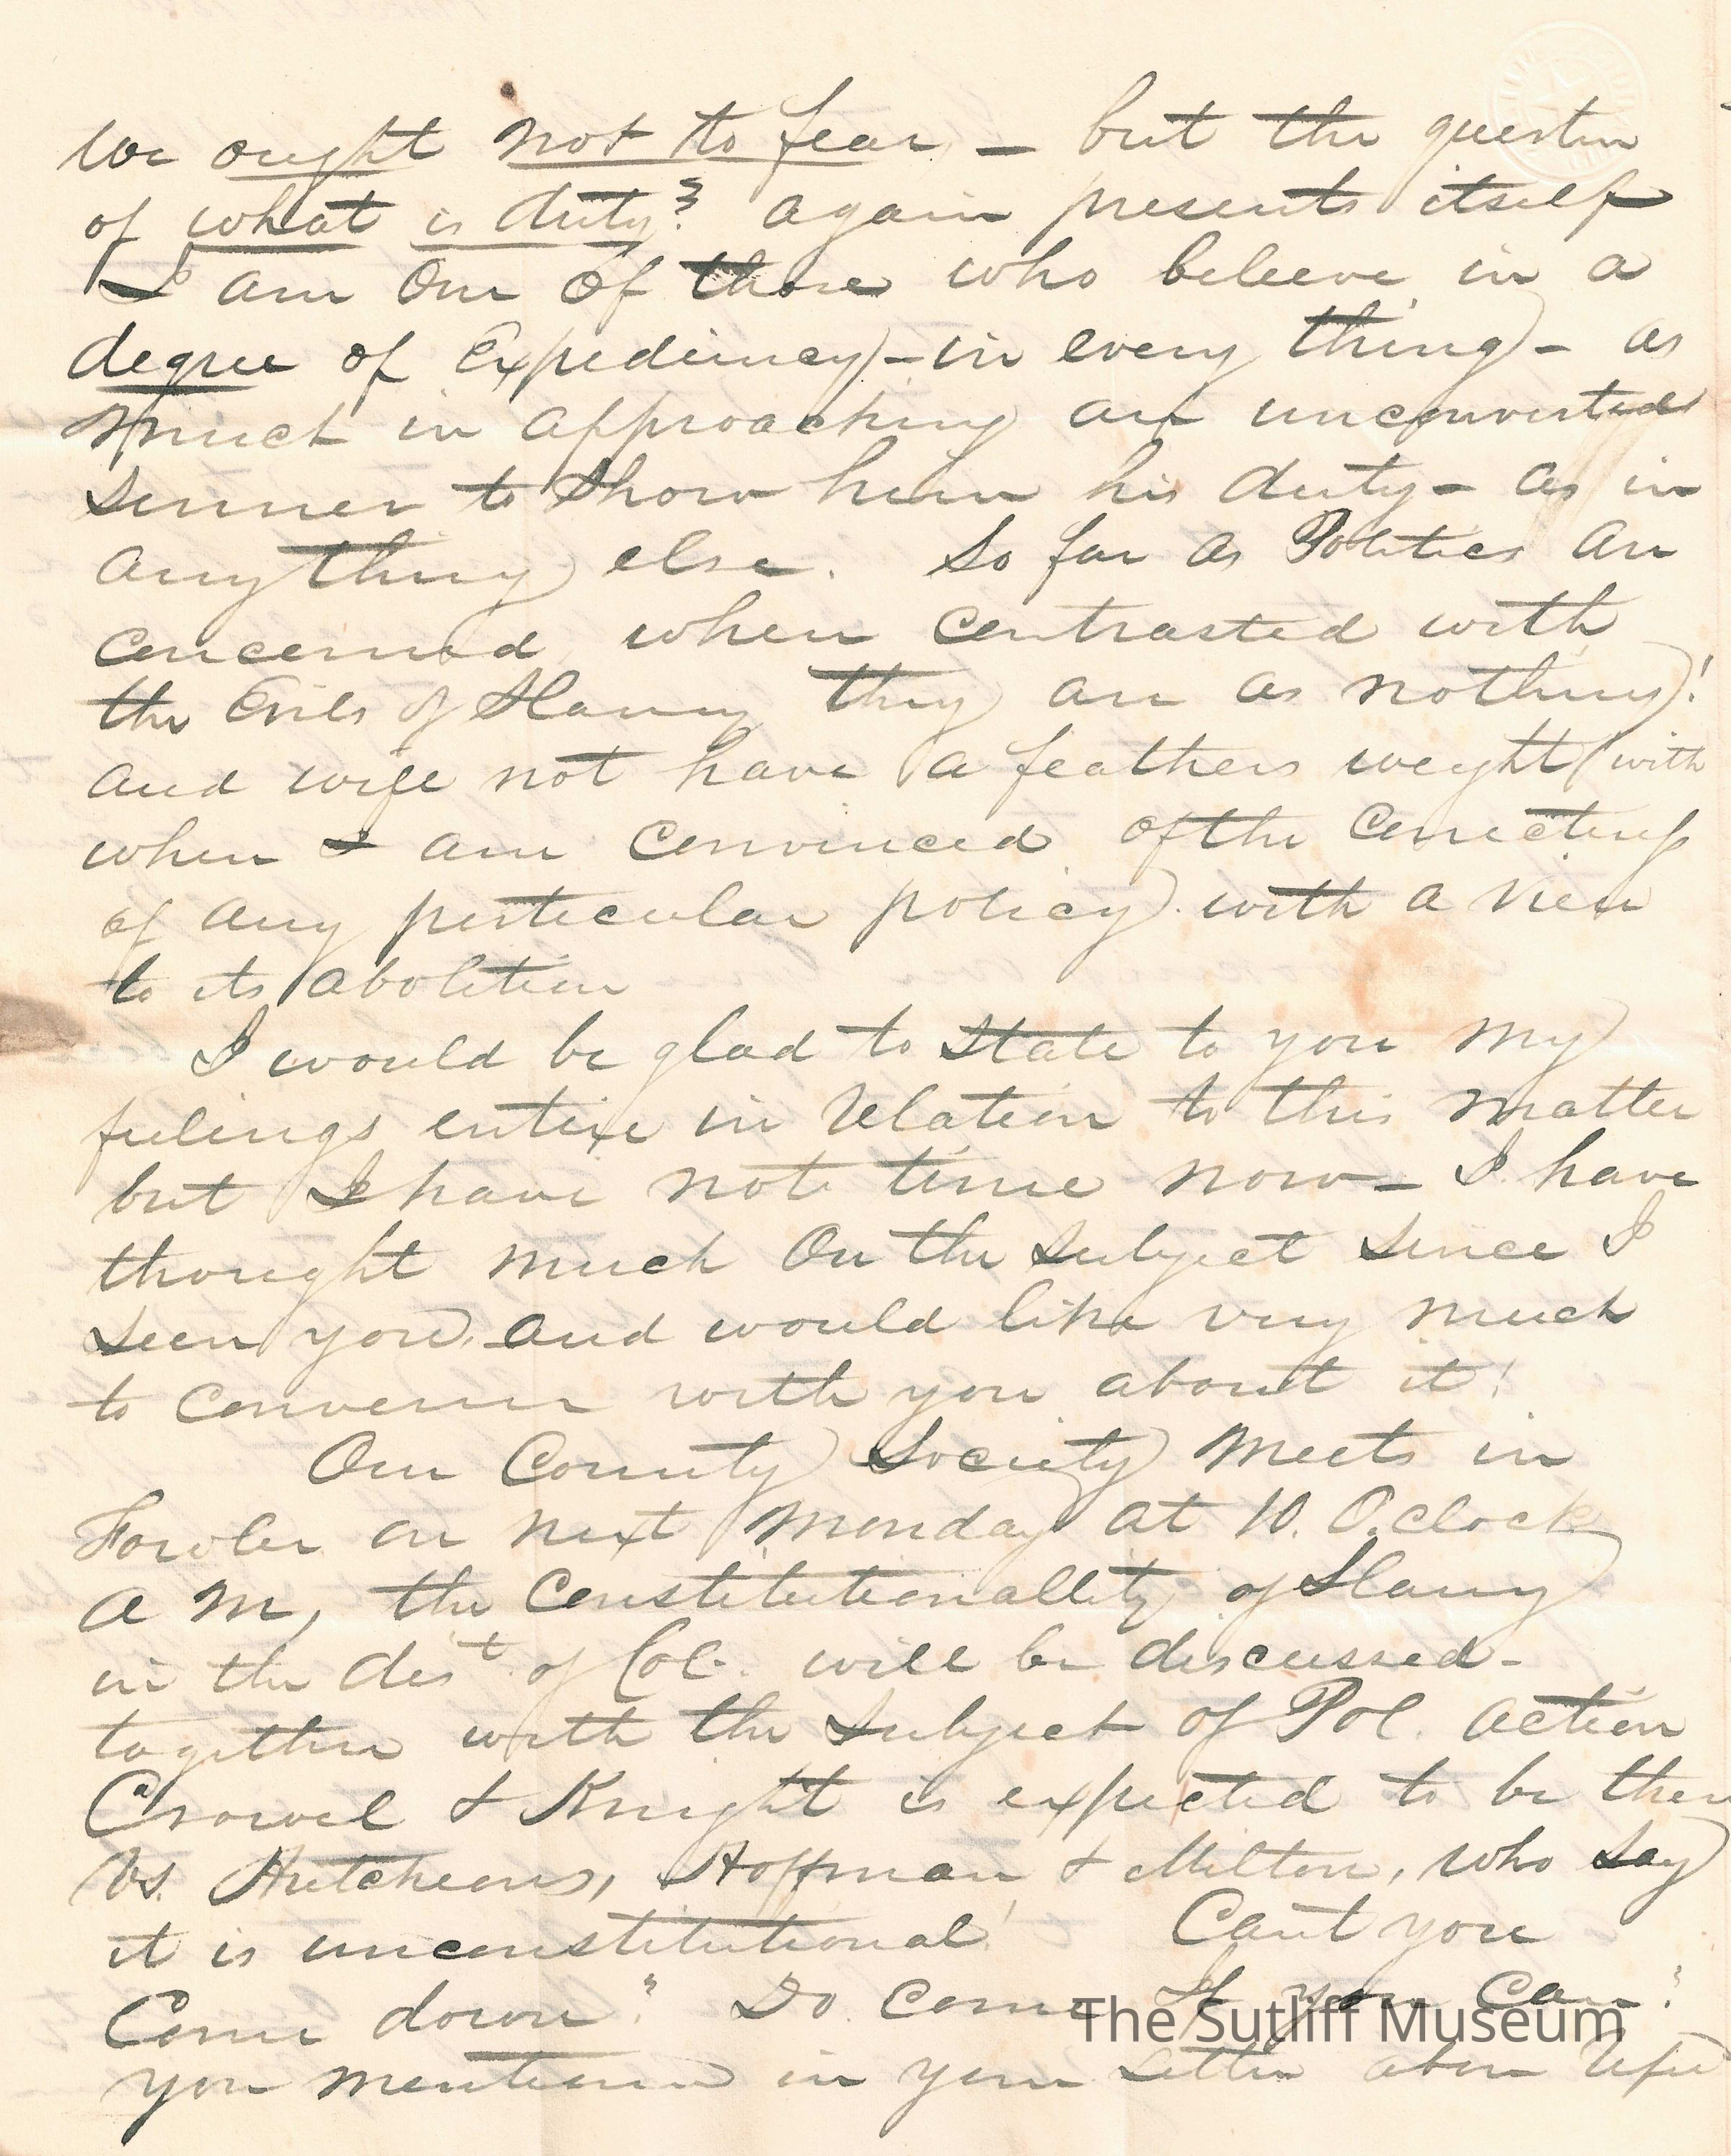 We ought not to fear, — but the question
of what is duty? again presents itself
I am One Of those who beleeve in a
degree of Expediency - in every thing - as
much in approaching an unconverted
sinner to Show him his duty - as in
anything else. So far as Politics are
concerned when contrasted with
the Evils of Slavery they are as nothing!
and will not have a feathers weight (with
when I am Convinced of the Correctness
of any perticular policy with a view
to its abolition
I would be glad to State to you my
feelings entire in relation to this matter
but I have not time now — I have
thought much On the Subject Since I
seen you, and would like very much
to converse with you about it!
Our County Society meets in
Fowler on next Monday at 10. O.clock
A M, the Constitutionallity of Slavery
in the dist. of Col. will be discussed -
together with the Subject of Pol. action
Crowel & Knight is expected to be there
Vs. Hutcheons, Hoffman & Milton, who say
it is unconstitutional! Cant you
Come down? Do. come If you Can?
you mentioned in your Letter above
The Sutliff Museum